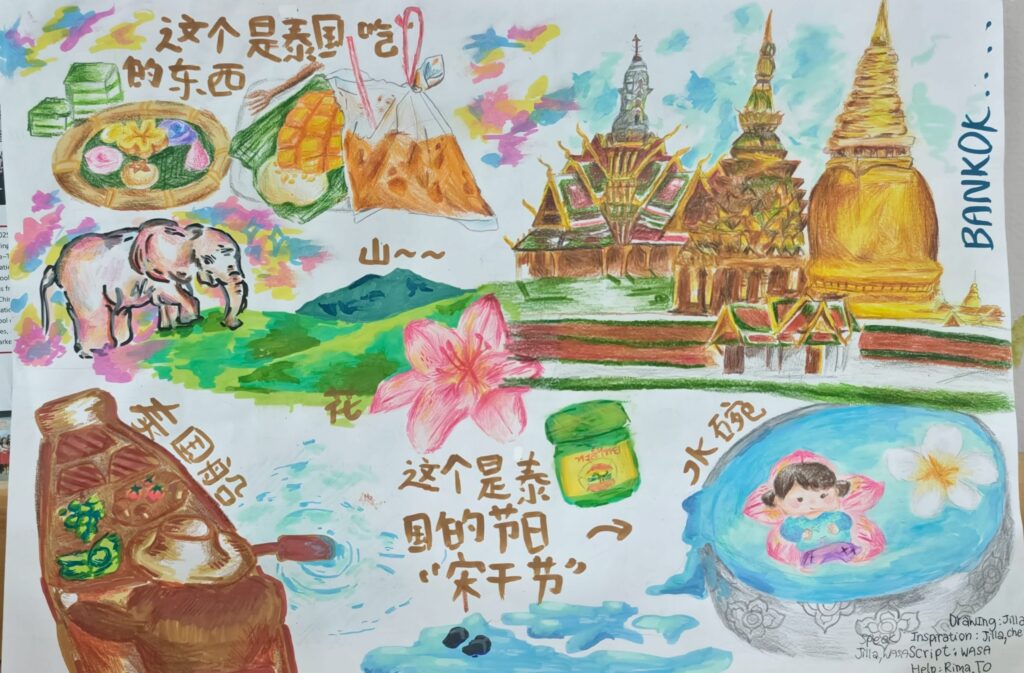 这个是泰国吃
的东西
BANKOK....
山~~
花
泰国船
这个是泰
国的节日
"宋干节"
→
水碗
Drawing: Jilla
Speak Inspiration: Jilla, che
Jilla, WASA Script: WASA
Help: Rima, TO